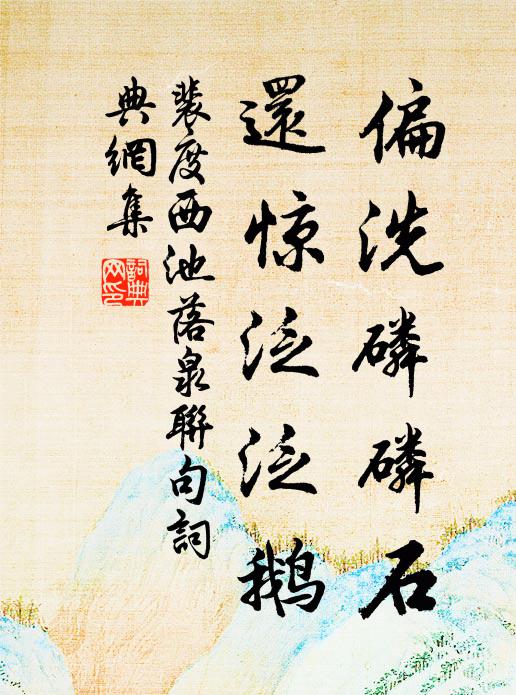 偏洗磷磷石
還惊泛泛鹅
裴度西池落泉聯句詞
典網集
詞典
网印